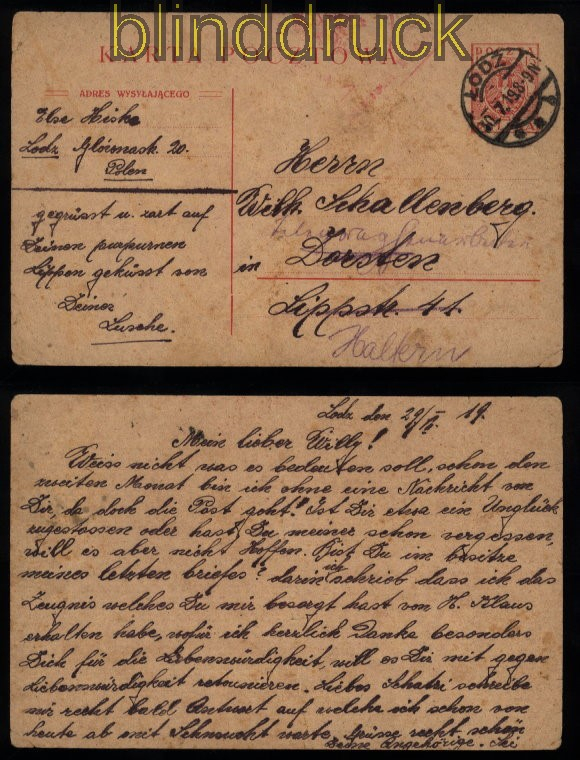 blinddruck
KARTA POCZTOWA
POCZTA
ADRES WYSYŁAJĄCEGO
LODZ
19.8-9N
Else Hiske
Lodz 20.
Polen
Herrn
Wilh. Schallenberg.
in Dorsten
Lippstr. 41.
Haltern
gegrüsst u. zart auf
Deinen purpurnen
Lippen geküsst von
Deiner
Lusche.
Lodz den 29/ 19.
Mein lieber Willy!
Weiss nicht was es bedeuten soll, schon den
zweiten Monat bin ich ohne eine Nachricht von
Dir, da doch die Post geht! Ist Dir etwa ein Unglück
zugestossen oder hast Du meiner schon vergessen,
will es aber nicht hoffen. Bist Du im besitze
meines letzten briefes? darin schrieb ich dass ich das
Zeugnis welches Du mir besorgt hast von H. Klaus
erhalten habe, wofür ich herrlich Danke besonders
Dich für die Liebenswürdigkeit, will es Dir mit gegen
Liebenswürdigkeit retounieren. Liebes Schatzi schreibe
mir recht bald Antwort auf welche ich schon von
heute ab mit Sehnsucht warte. Grüsse recht schön
Deine Angehörige. Sei